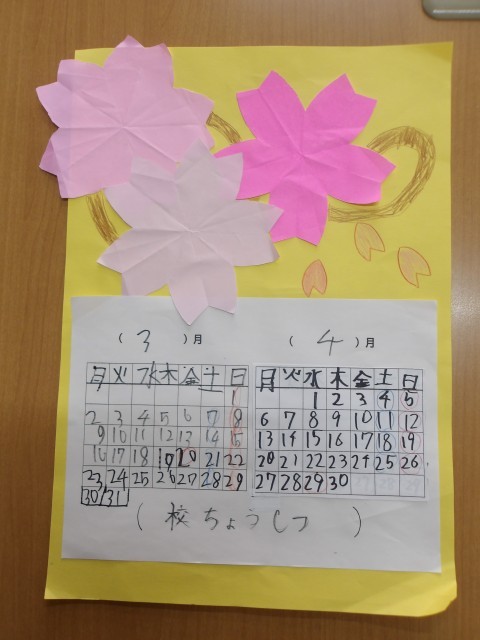 ( 3 )月
月 火 水 木 金 土 日
1
2 3 4 5 6 7 8
9 10 11 12 13 14 15
16 17 18 19 20 21 22
23 24 25 26 27 28 29
30 31
( 4 )月
月 火 水 木 金 土 日
1 2 3 4 5
6 7 8 9 10 11 12
13 14 15 16 17 18 19
20 21 22 23 24 25 26
27 28 29 30
( 校ちょうしつ )